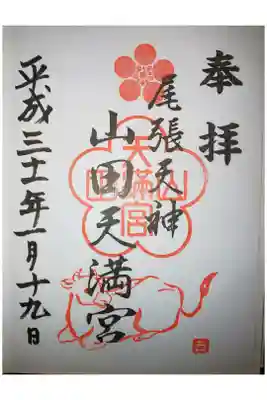 奉拝
尾張天神
山田天満宮
平成三十一年一月十九日
山田天満宮